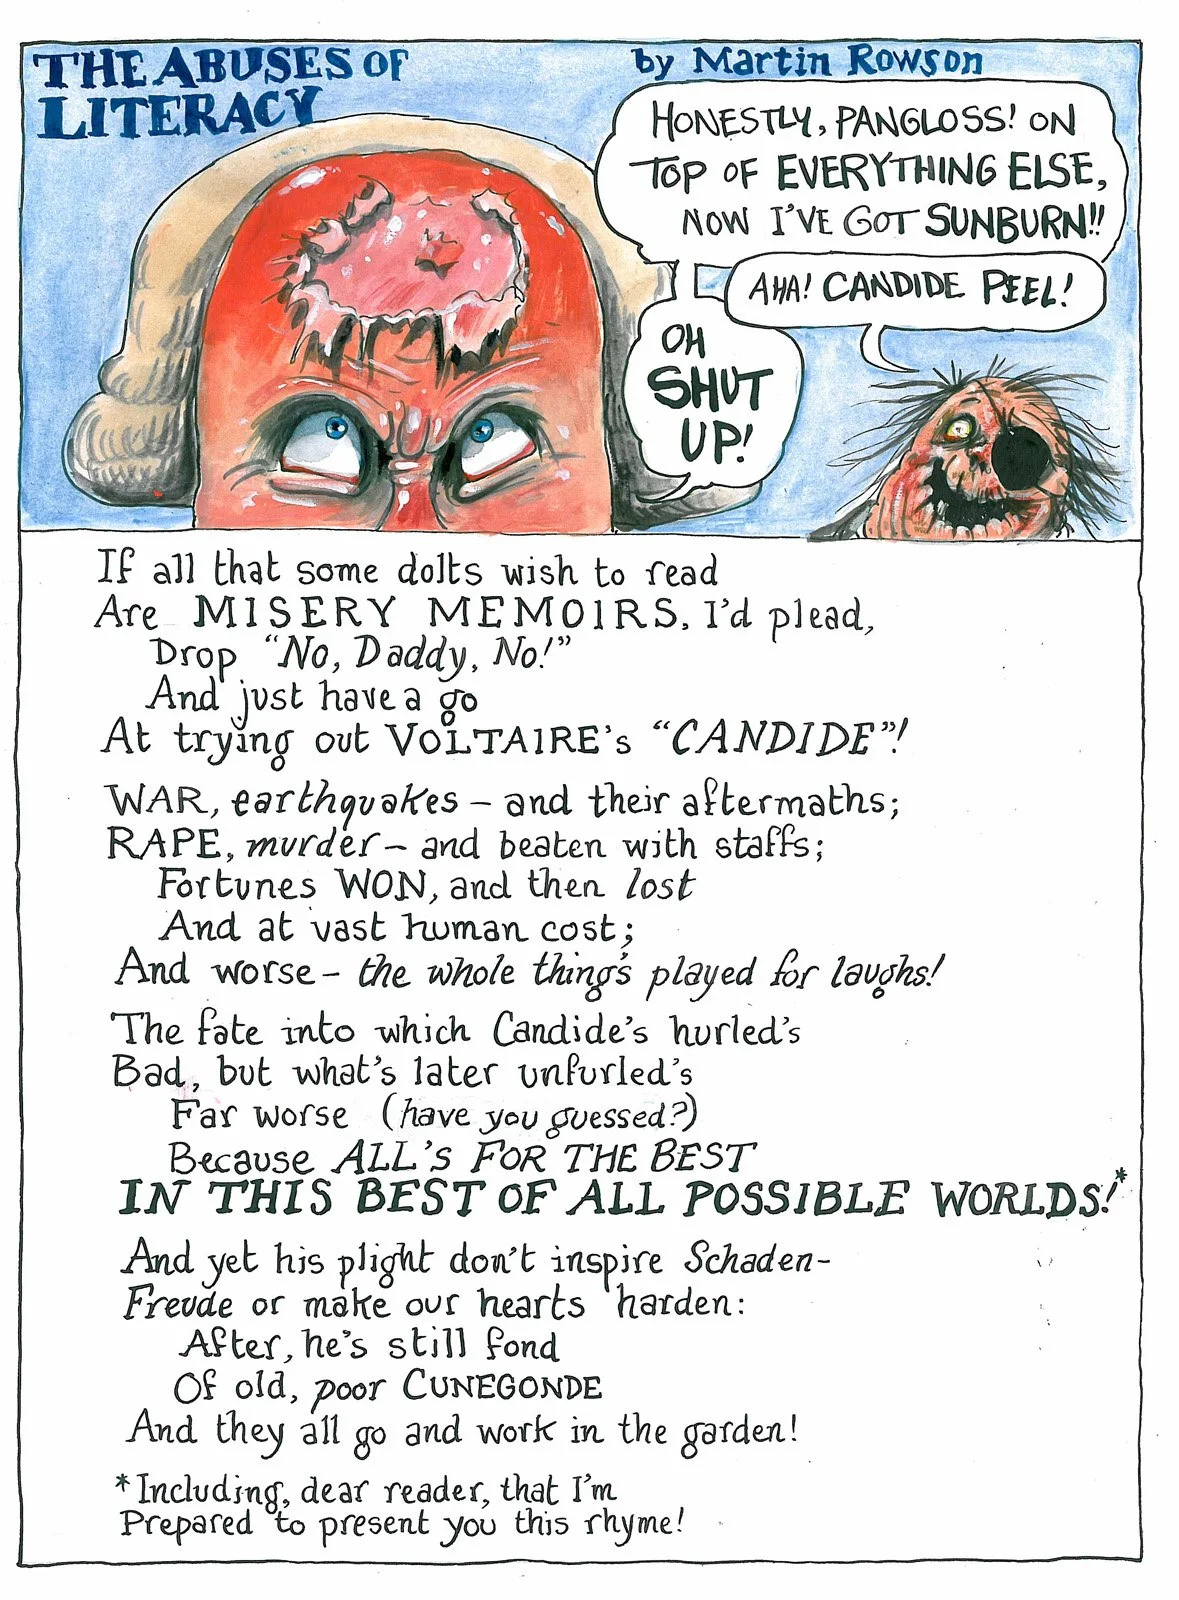 THE ABUSES OF
LITERACY
by Martin Rowson
HONESTLY, PANGLOSS! ON
TOP OF EVERYTHING ELSE,
NOW I'VE GOT SUNBURN!!
AHA! CANDIDE PEEL!
OH
SHUT
UP!
If all that some dolts wish to read
Are MISERY MEMOIRS, I'd plead,
Drop "No, Daddy, No!"
And just have a go
At trying out VOLTAIRE's "CANDIDE"!
WAR, earthquakes – and their aftermaths;
RAPE, murder – and beaten with staffs;
Fortunes WON, and then lost
And at vast human cost;
And worse – the whole thing's played for laughs!
The fate into which Candide's hurled's
Bad, but what's later unfurled's
Far worse (have you guessed?)
Because ALL'S FOR THE BEST
IN THIS BEST OF ALL POSSIBLE WORLDS!*
And yet his plight don't inspire Schaden-
Freude or make our hearts harden:
After, he's still fond
Of old, poor CUNEGONDE
And they all go and work in the garden!
*Including, dear reader, that I'm
Prepared to present you this rhyme!